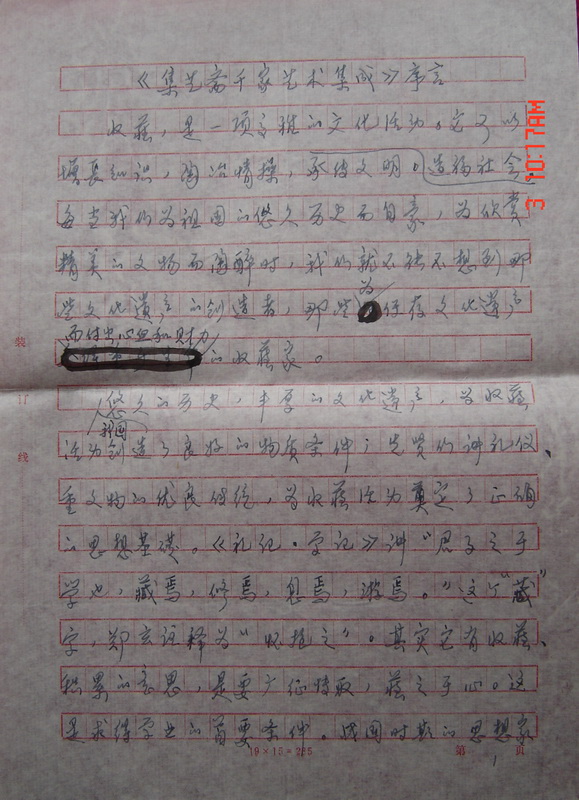 《集艺斋千家艺术集成》序言
收藏，是一项高雅的文化活动。它可以
增长知识，陶冶情操，承传文明。造福社会。
每当我们为祖国的悠久历史而自豪，为欣赏
精美的文物而陶醉时，我们就不能不想到那
些文化遗产的创造者，那些为保存文化遗产
而付出心血和财力
的收藏家。
悠久的历史，丰厚的文化遗产，为收藏
我国
活动创造了良好的物质条件；先贤们讲礼仪、
重文物的优良传统，为收藏活动奠定了正确
的思想基础。《礼记·学记》讲“君子之于
学也，藏焉，修焉，息焉，游焉。”这个“藏”
字，郑玄注释为“怀抱之”。其实它有收藏、
积累的意思，是要广征博取，藏之于心。这
是求得学业的首要条件。战国时期的思想家
19×15=285
第 1 页
装
订
线
3 10:17AM